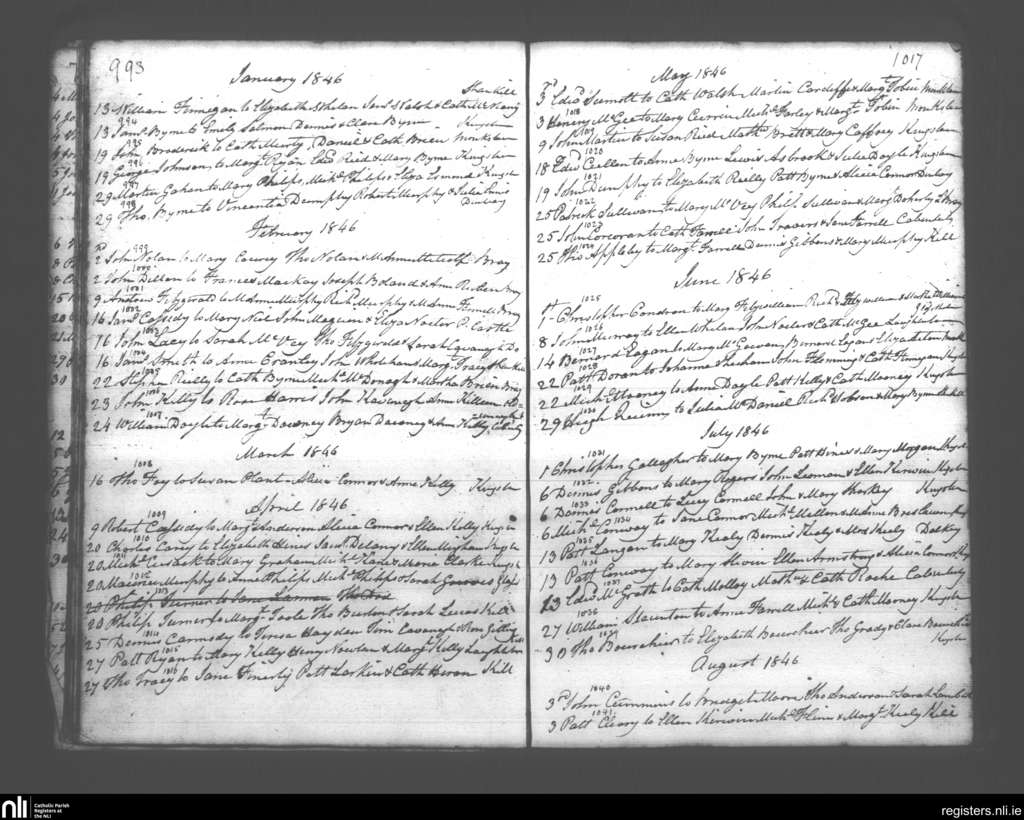 993
January 1846
Shankill
13 William Finnegan to Elizabeth Whelan Jams Walsh & Cath
994
13 Jams Byrne to Emily Salmon Dennis & Clara Byrne Kingstn
995
19 John Broderick to Cath Murty, Daniel & Cath Brien Monkstn
996
19 George Johnson, to Margt Ryan Edwd Reid & Mary Byrne Kingstn
997
29 Martin Gahan to Mary Philps, Michl Philps & Eliza Kingstn
998
29 Tho. Byrne to Vincentia Dumphy Robert Murphy & Julia Ennis
Dunleary
February 1846
999
2nd John Nolan to Mary Tho Nolan M Anne Metcalf Bray
1000
2 John Dillon to Frances MacKay Joseph Boland & Ann Bray
1001
9 Andrew Fitzgerald to M Anne Murphy Richd Murphy & M Ann Fennell Bray
1002
16 Jams Cassedy to Mary Neil John Maguire & Eliza Nocter P. Castle
1003
16 John Lacy to Sarah Mc Vey Tho Fitzgerald & Sarah Do
1004
16 Jams Smith to Anne John Whelan & Margt Tracy Shankill
1005
22 Stephen Reilly to Cath Byrne Michl Mc Donagh & Martha Brien Bray
1006
23 John Kelly to Rose Harris John Kavanagh Ann Killeen
1007
24 William Doyle to Margt Downey Bryan Downey & Ann Kelly, Cabinteely
March 1846
1008
16 Tho Fay to Susan Plant Alicia Connor & Anne Kelly Kingstn
April 1846
1009
9 Robert Cassedy to Margt Anderson Alicia Connor & Ellen Kelly Kingstn
1010
20 Charles Carey to Elizabeth Hines Jams Delany & Ellen Kingstn
1011
20 Michl Cusack to Mary Graham Michl Kane & Maria Clarke Kingstn
1012
20 Maurice Murphy to Anne Philps Michl Philps & Sarah
20 Philip Turner to Jane
1013
20 Philip Turner to Margt Toole Tho Burton & Sarah Lucas Kill
1014
25 Dennis Carmody to Teresa Hayden Tim Cavanagh & Rose
1015
27 Patt Ryan to Mary Kelly Henry Nowlan & Margt Kelly
1016
27 Tho Tracy to Jane Finerty Patt Larkin & Cath Heron Kill
1017
May 1846
3rd Edwd Sinnott to Cath Walsh Martin Cardiffe & Margt Tobin Monkstn
1018
3 Henery Mc Gee to Mary Curran Michl Farley & Margt Tobin Monkstn
1019
9 John Martin to Susan Reid Mathw Brett & Mary Caffrey Kingstown
1020
18 Edwd Cullen to Anne Byrne Lewis Asbrook & Julia Doyle Kingstown
1021
19 John Dumphy to Elizabeth Reilly Patt Byrne & Alicia Connor Dunleary
1022
25 Patrick Sullivan to Mary Mc Vey Phill Sullivan & Mary Doherty
1023
25 John Corcoran to Cath Farrell John Travers & Jane Farrell Cabinteely
1024
25 Tho Appleby to Margt Farrell Dennis Gibbons & Mary Murphy Kill
June 1846
1025
1st Christopher Condron to Mary Fitzwilliam Richd Fitzwilliam &
1026
8 John Murray to Ellen Whelan John Nocter & Cath McGee
1027
14 Bernard Eagan to Mary McGowran, Bernard & Elizabeth
1028
22 Patt Doran to Johanna Sheehan John Flemming & Cath Finegan Kingstn
1029
22 Mich to Anne Doyle Patt Kelly & Cath Mooney Kingstn
1030
29 Hugh to Julia McDaniel Richd Hobson & Mary Byrne
July 1846
1031
1st Christopher Gallagher to Mary Byrne Patt Hines & Mary Morgan Kingstn
1032
6 Dennis Gibbons to Mary Rogers John Leonard & Ellen Kirwan Kingstn
1033
6 Dennis Connell to Lucy Connell John & Mary Sharkey Kingstn
1034
6 Michl Conway to Jane Connor Michl Mellon & M Anne
1035
13 Patt Langan to Mary Kealy Dennis Kealy & Mary Kealy Dalkey
1036
13 Patt Conway to Mary Ellen Armstrong & Alicia Connor
1037
23 Edwd McGrath to Cath Molloy Mathw & Cath Roche Cabinteely
1038
27 William Staunton to Anne Farrell Michl & Cath Mooney Kingstn
1039
30 Tho Bourchier to Elizabeth Bourchier Tho Grady & Clare
Kingstn
August 1846
1040
3rd John Cummins to Bridget Moore Tho Anderson & Sarah
1041
3 Patt Cleary to Ellen Kirwan Michl Flinn & Margt Kealy Kill
nli
Catholic Parish
Registers at
the NLI
registers.nli.ie